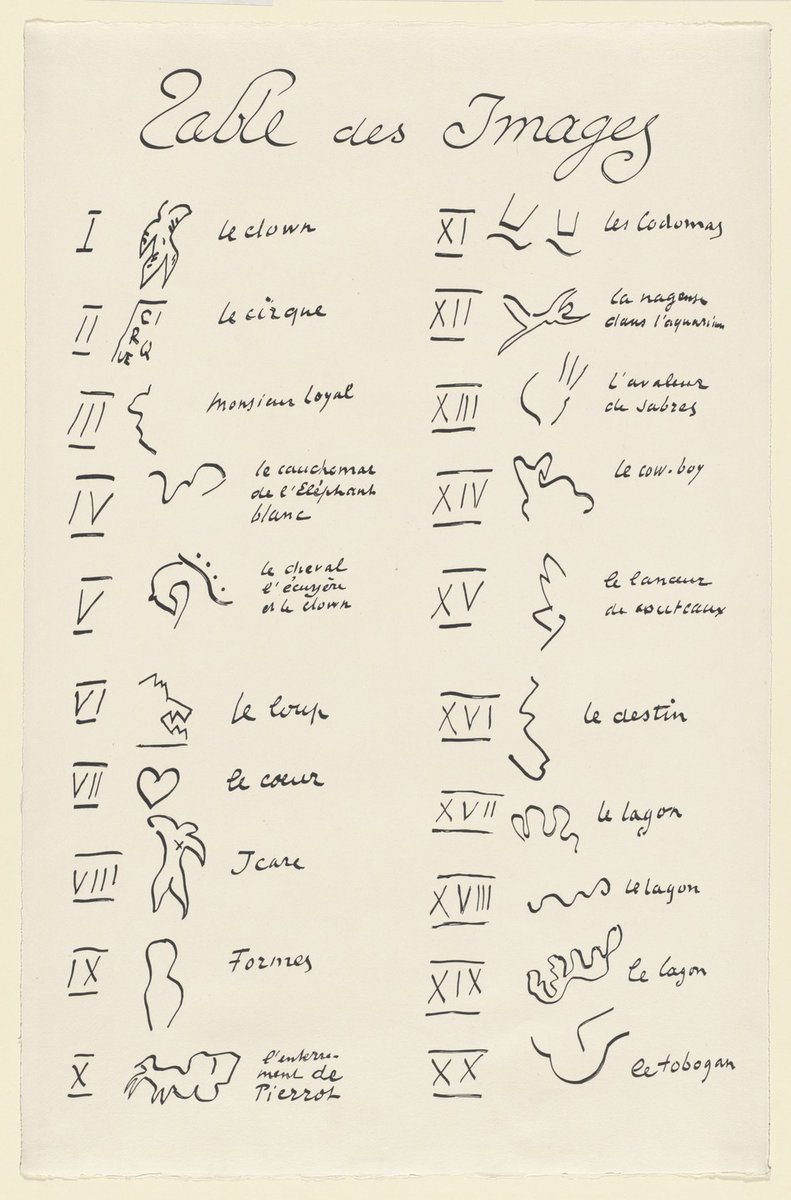 Table des Images
I le clown
II CIRQUE le cirque
III Monsieur Loyal
IV le cauchemar
de l'Eléphant
blanc
V le cheval
l'écuyère
et le clown
VI le loup
VII le coeur
VIII Icare
IX Formes
X l'enterre-
ment de
Pierrot
XI les Codomas
XII la nageuse
dans l'aquarium
XIII l'avaleur
de sabres
XIV le cow-boy
XV le lanceur
de couteaux
XVI le destin
XVII le lagon
XVIII le lagon
XIX le lagon
XX le tobogan